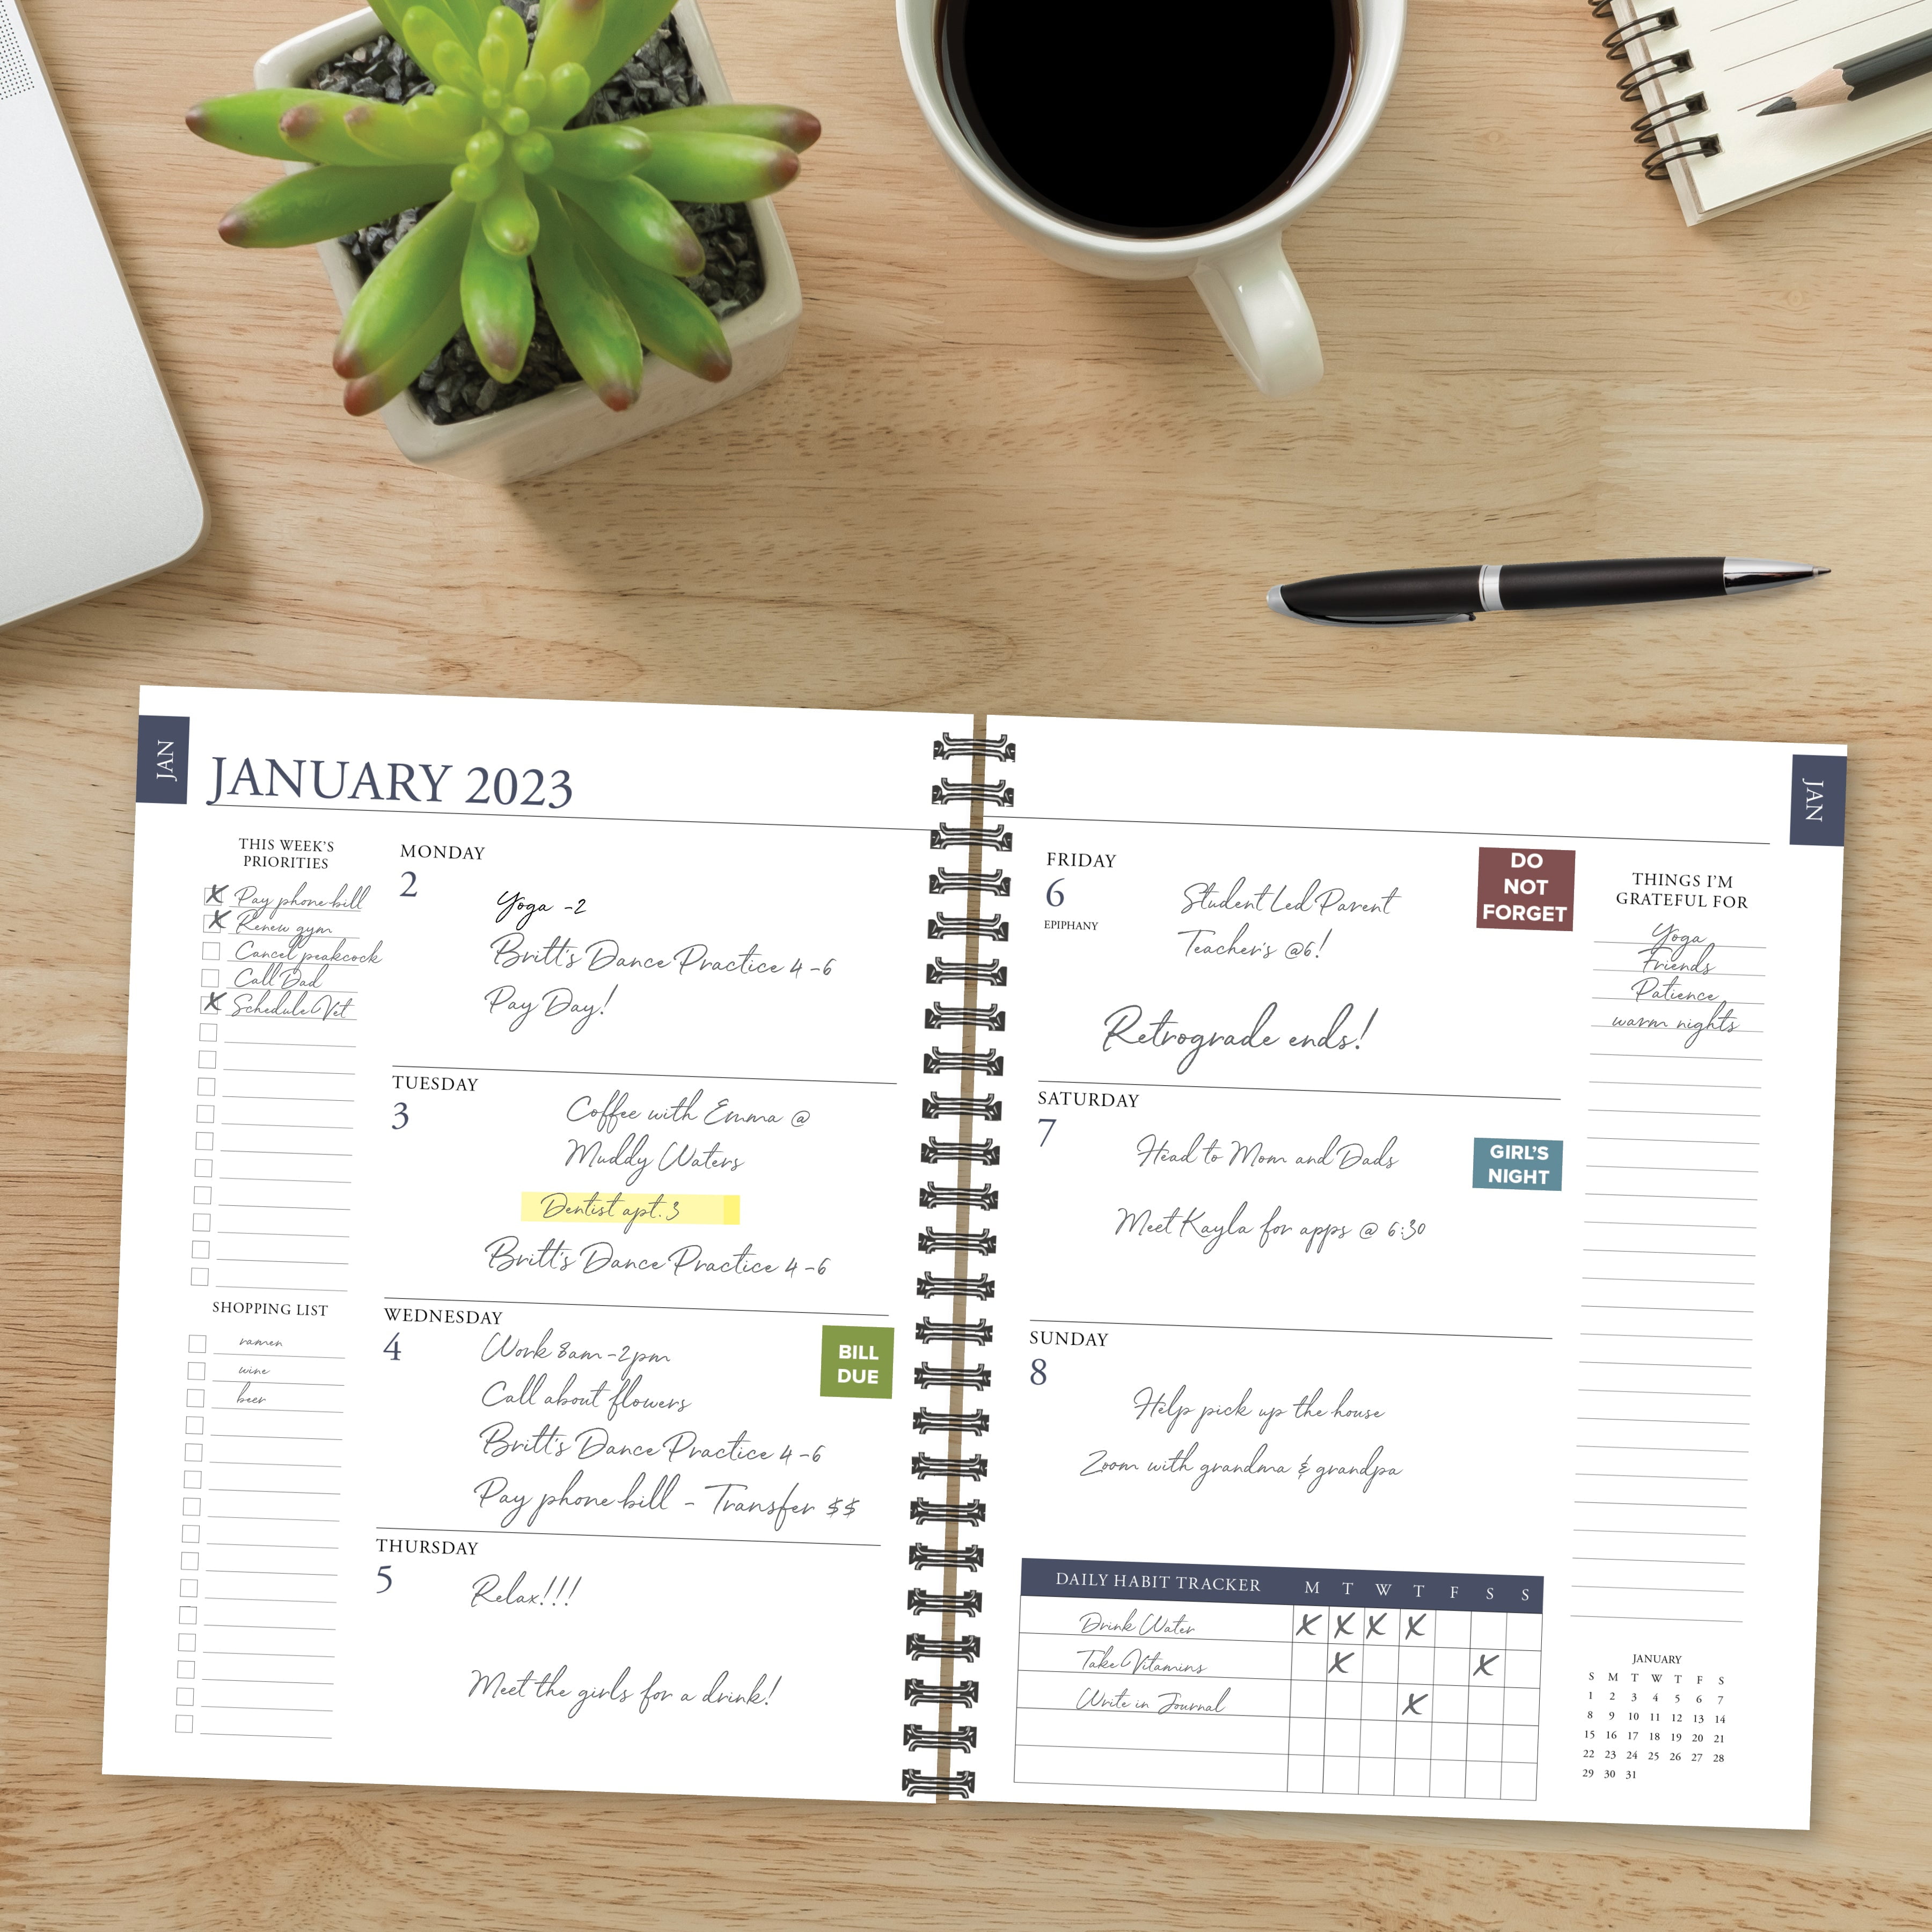 JAN
JANUARY 2023
THIS WEEK'S
PRIORITIES
Pay phone bill
Renew gym
Cancel peakcock
Call Dad
Schedule Vet
SHOPPING LIST
ramen
wine
beer
MONDAY
2
Yoga -2
Britt's Dance Practice 4-6
Pay Day!
TUESDAY
3
Coffee with Emma @
Muddy Waters
Dentist apt. 3
Britt's Dance Practice 4-6
WEDNESDAY
4
Work 8am-2pm
Call about flowers
Britt's Dance Practice 4-6
Pay phone bill - Transfer $$
BILL
DUE
THURSDAY
5
Relax!!!
Meet the girls for a drink!
FRIDAY
6
EPIPHANY
Student Led Parent
Teacher's @6!
Retrograde ends!
DO
NOT
FORGET
SATURDAY
7
Head to Mom and Dads
Meet Kayla for apps @ 6:30
GIRL'S
NIGHT
SUNDAY
8
Help pick up the house
Zoom with grandma & grandpa
DAILY HABIT TRACKER M T W T F S S
Drink Water X X X X
Take Vitamins X X
Write in Journal X
JAN
THINGS I'M
GRATEFUL FOR
Yoga
Friends
Patience
warm nights
JANUARY
S M T W T F S
1 2 3 4 5 6 7
8 9 10 11 12 13 14
15 16 17 18 19 20 21
22 23 24 25 26 27 28
29 30 31